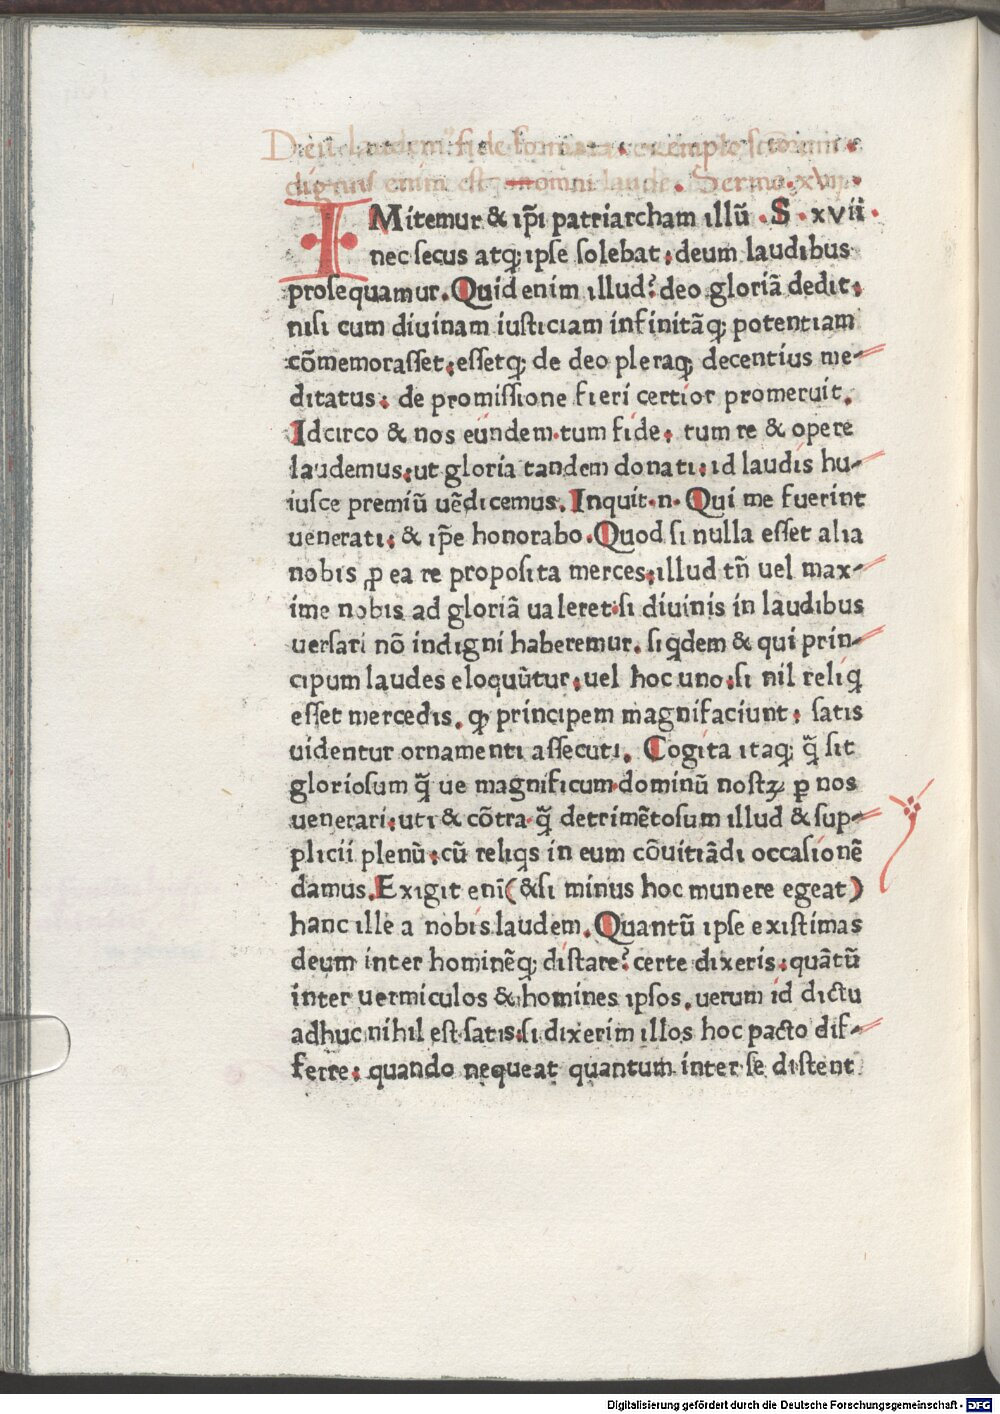 dignus enim est omni laude. Sermo. xvij.
IMitemur & ip̄i patriarcham illū. S. xvii.
nec secus atq; ipse solebat: deum laudibus
prosequamur. Quid enim illud? deo gloriā dedit:
nisi cum diuinam iusticiam infinitāq; potentiam
cōmemorasset: essetq; de deo pleraq; decentius me-
ditatus: de promissione fieri certior promeruit.
Idcirco & nos eundem tum fide: tum re & opere
laudemus: ut gloria tandem donati: id laudis hu-
iusce premiū uēdicemus. Inquit .n. Qui me fuerint
uenerati: & ip̄e honorabo. Quod si nulla esset alia
nobis ꝓ ea re proposita merces: illud tñ uel max-
ime nobis ad gloriā ualeret: si diuinis in laudibus
uersari nō indigni haberemur. siqdem & qui prin-
cipum laudes eloquūtur: uel hoc uno: si nil reliq
esset mercedis. ꝙ principem magnifaciunt: satis
uidentur ornamenti assecuti. Cogita itaq; q̄ sit
gloriosum q̄ ue magnificum dominū nostꝝ ꝑ nos
uenerari: uti & cōtra q̄ detrimētosum illud & sup-
plicii plenū: cū reliqs in eum cōuitiādi occasionē
damus. Exigit eni (& si minus hoc munere egeat)
hanc ille a nobis laudem. Quantū ipse existimas
deum inter hominēq; distare? certe dixeris: quātū
inter uermiculos & homines ipsos. uerum id dictu
adhuc nihil est satis: si dixerim illos hoc pacto dif-
ferre: quando nequeat quantum inter se distent
Digitalisierung gefördert durch die Deutsche Forschungsgemeinschaft - DFG